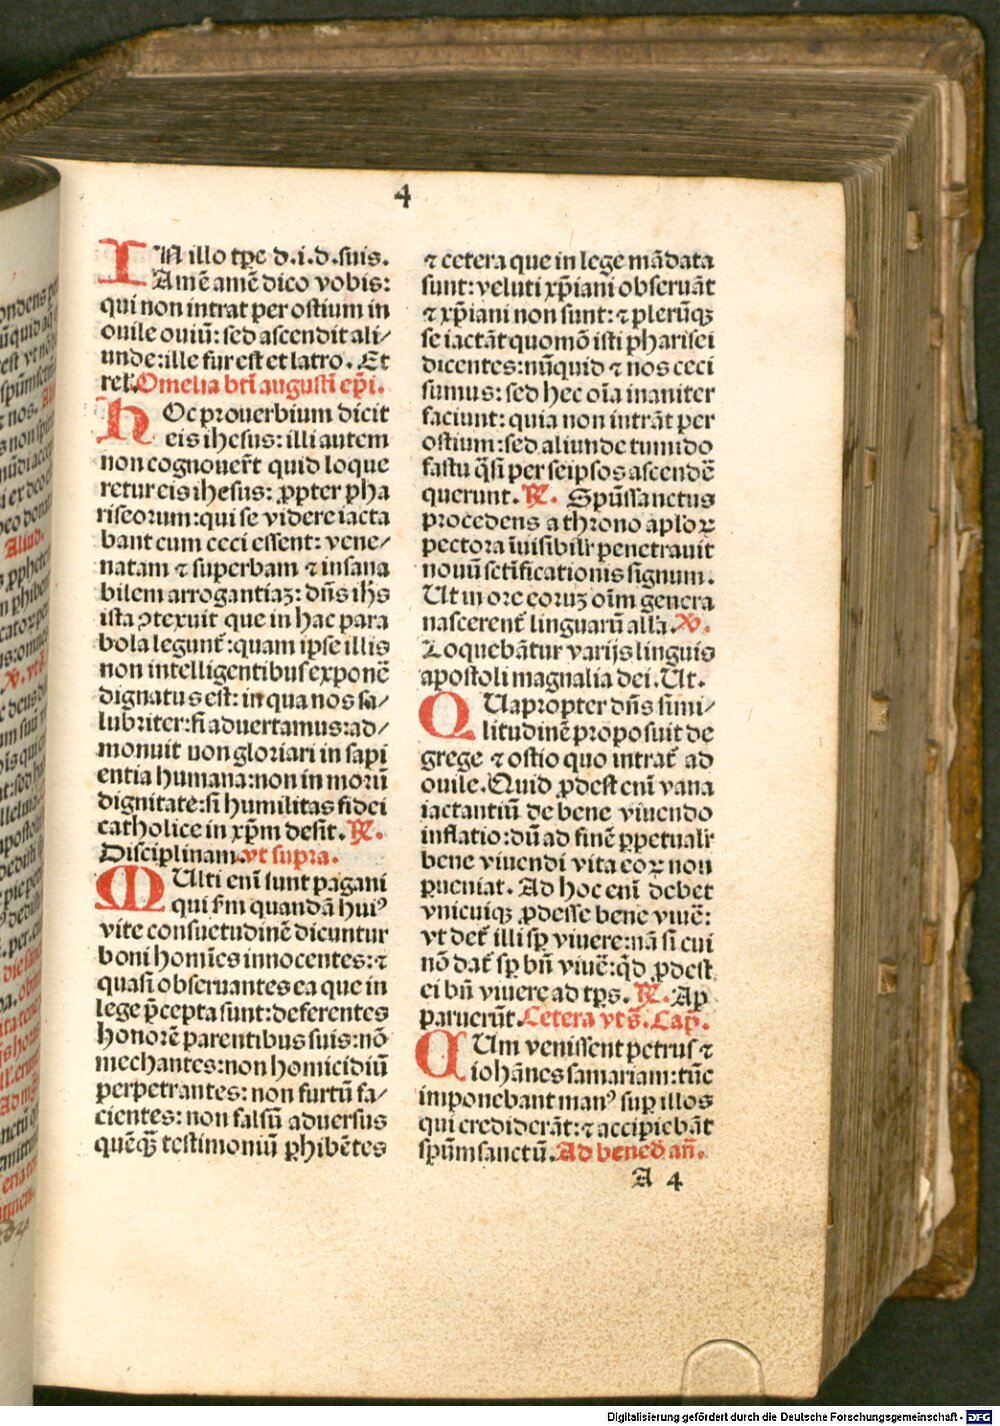 4
IN illo tp̄e d.i.d.suis.
Amē amē dico vobis:
qui non intrat per ostium in
ouile ouiū: sed ascendit ali/
unde:ille fur est et latro. Et
rel̓. Omelia bt̄i augusti ep̄i.
HOc prouerbium dicit
eis ihesus: illi autem
non cognouer̄t quid loque
retur eis ihesus: ꝓpter pha
riseorum:qui se videre iacta
bant cum ceci essent: vene/
natam ⁊ superbam ⁊ insana
bilem arrogantiaꝫ: dn̄s ih̄s
ista ꝯtexuit que in hac para
bola legunt̄: quam ipse illis
non intelligentibus exponē
dignatus est: in qua nos sa/
lubriter:si aduertamus:ad/
monuit uon gloriari in sapi
entia humana:non in morū
dignitate:si humilitas fidei
catholice in xp̄m desit. ℟.
Disciplinam.vt supra.
MUlti enī sunt pagani
qui sm̄ quandā huiꝰ
vite consuetudinē dicuntur
boni homīes innocentes: ⁊
quasi obseruantes ea que in
lege p̄cepta sunt: deferentes
honorē parentibus suis: nō
mechantes: non homicidiū
perpetrantes: non furtū fa/
cientes: non falsū aduersus
quēqꝫ testimoniū ꝓhibētes
⁊ cetera que in lege mādata
sunt: veluti xp̄iani obseruāt
⁊ xp̄iani non sunt: ⁊ plerūqꝫ
se iactāt quomō isti pharisei
dicentes: nūquid ⁊ nos ceci
sumus: sed hec oīa inaniter
faciunt: quia non intrāt per
ostium: sed aliunde tumido
fastu q̄si per seipsos ascendē
querunt. ℟. Spūssanctus
procedens a throno apl̓oꝝ
pectora īuisibilr̄ penetrauit
nouū sctīficationis signum.
Ut in ore eoruꝫ oīm genera
nascerent̄ linguarū all̓a. ℣.
Loquebātur varijs linguis
apostoli magnalia dei. Ut.
QUapropter dn̄s simi/
litudinē proposuit de
grege ⁊ ostio quo intrat̄ ad
ouile. Quid ꝓdest enī vana
iactantiū de bene viuendo
inflatio: dū ad finē ꝑpetualr̄
bene viuendi vita eoꝝ non
ꝑueniat. Ad hoc enī debet
vnicuiqꝫ ꝓdesse bene viuē:
vt det̄ illi sp̄ viuere: nā si cui
nō dat̄ sp̄ bn̄ viuē: q̄d ꝓdest
ei bn̄ viuere ad tp̄s. ℟. Ap
paruerūt. Cetera vt s̄. Cap̄.
CUm venissent petrus ⁊
iohānes samariam: tūc
imponebant manꝰ suꝑ illos
qui crediderāt: ⁊ accipiebāt
spūmsanctū. Ad bened̄ an̄.
A 4
Digitalisierung gefördert durch die Deutsche Forschungsgemeinschaft - DFG